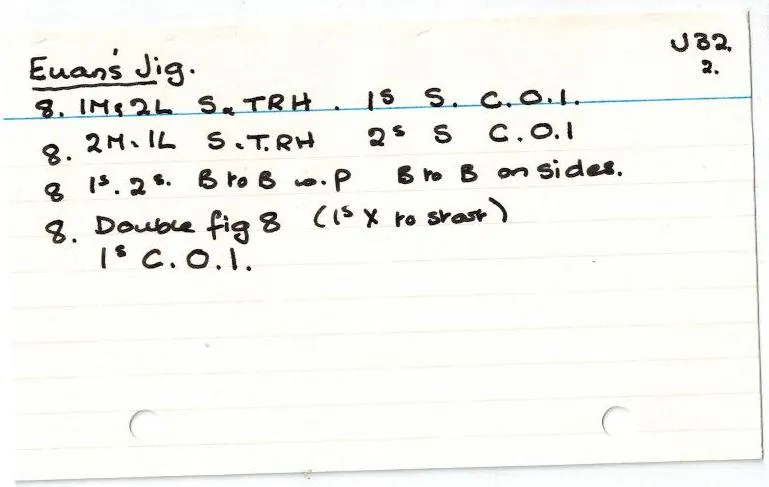 Euan's Jig.
J32
2.
8. 1M&2L S & TRH. 1s S. C.O.1.
8. 2M. 1L S.T.RH 2s S C.O.1
8 1s. 2s. B to B w.P B to B on sides.
8. Double fig 8 (1s X to start)
1s C.O.1.